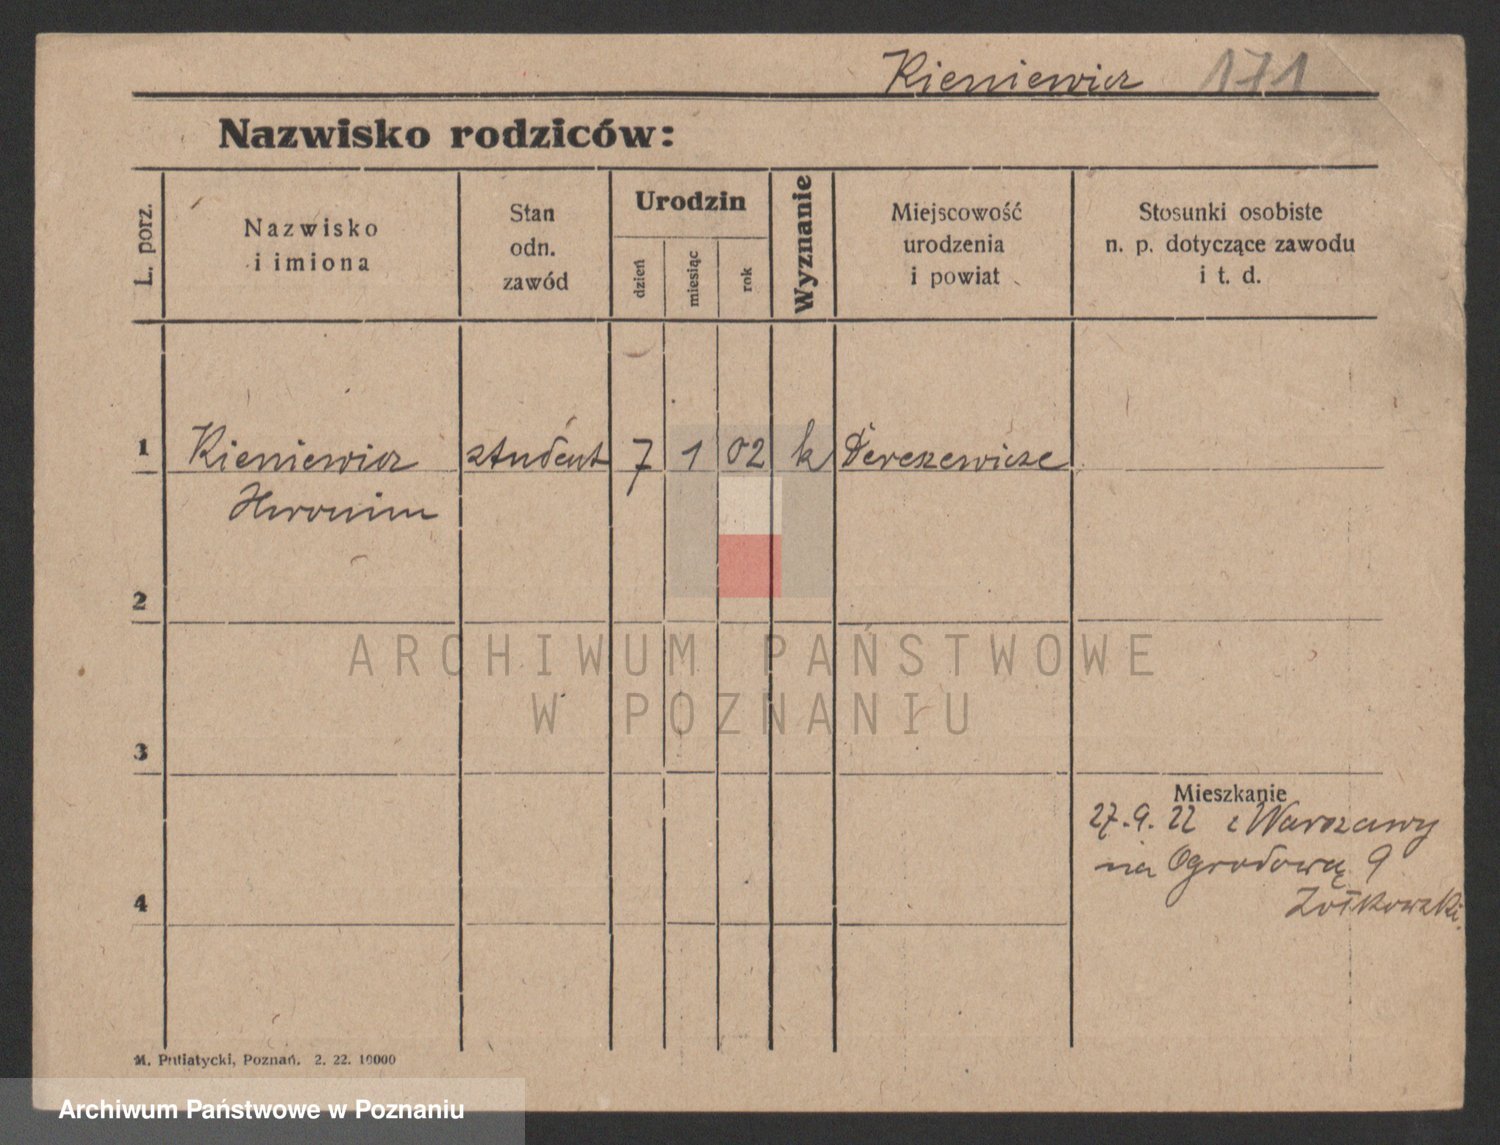 Kieniewicz 171
Nazwisko rodziców:
L. porz.
Nazwisko
i imiona
Stan
odn.
zawód
Urodzin
dzień
miesiąc
rok
Wyznanie
Miejscowość
urodzenia
i powiat
Stosunki osobiste
n. p. dotyczące zawodu
i t. d.
1 Kieniewicz student 7 1 02 k Derezewicze
Hieronim
2
ARCHIWUM PAŃSTWOWE
W POZNANIU
3
Mieszkanie
27.9.22 z Warszawy
na Ogrodową 9
Żółkowski.
4
M. Putiatycki, Poznań. 2. 22. 10000
Archiwum Państwowe w Poznaniu